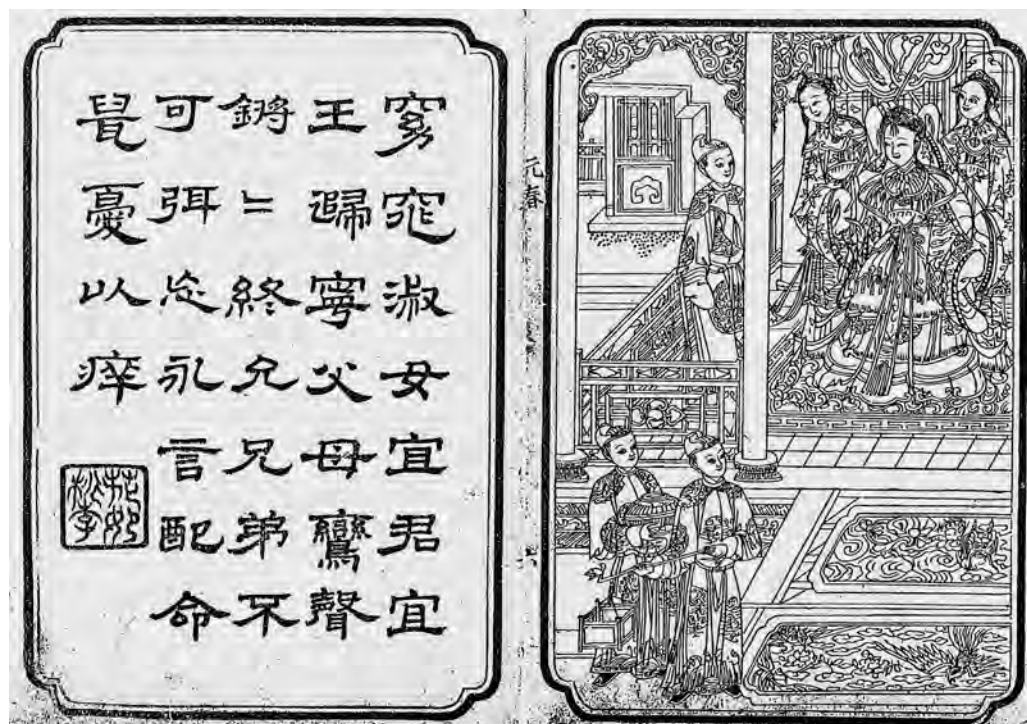 元春
窈窕淑女宜君宜
王歸寧父母鸞聲
鏘〻終允兄弟不
可弭忘永言配命
鼠憂以痒
花如桃李